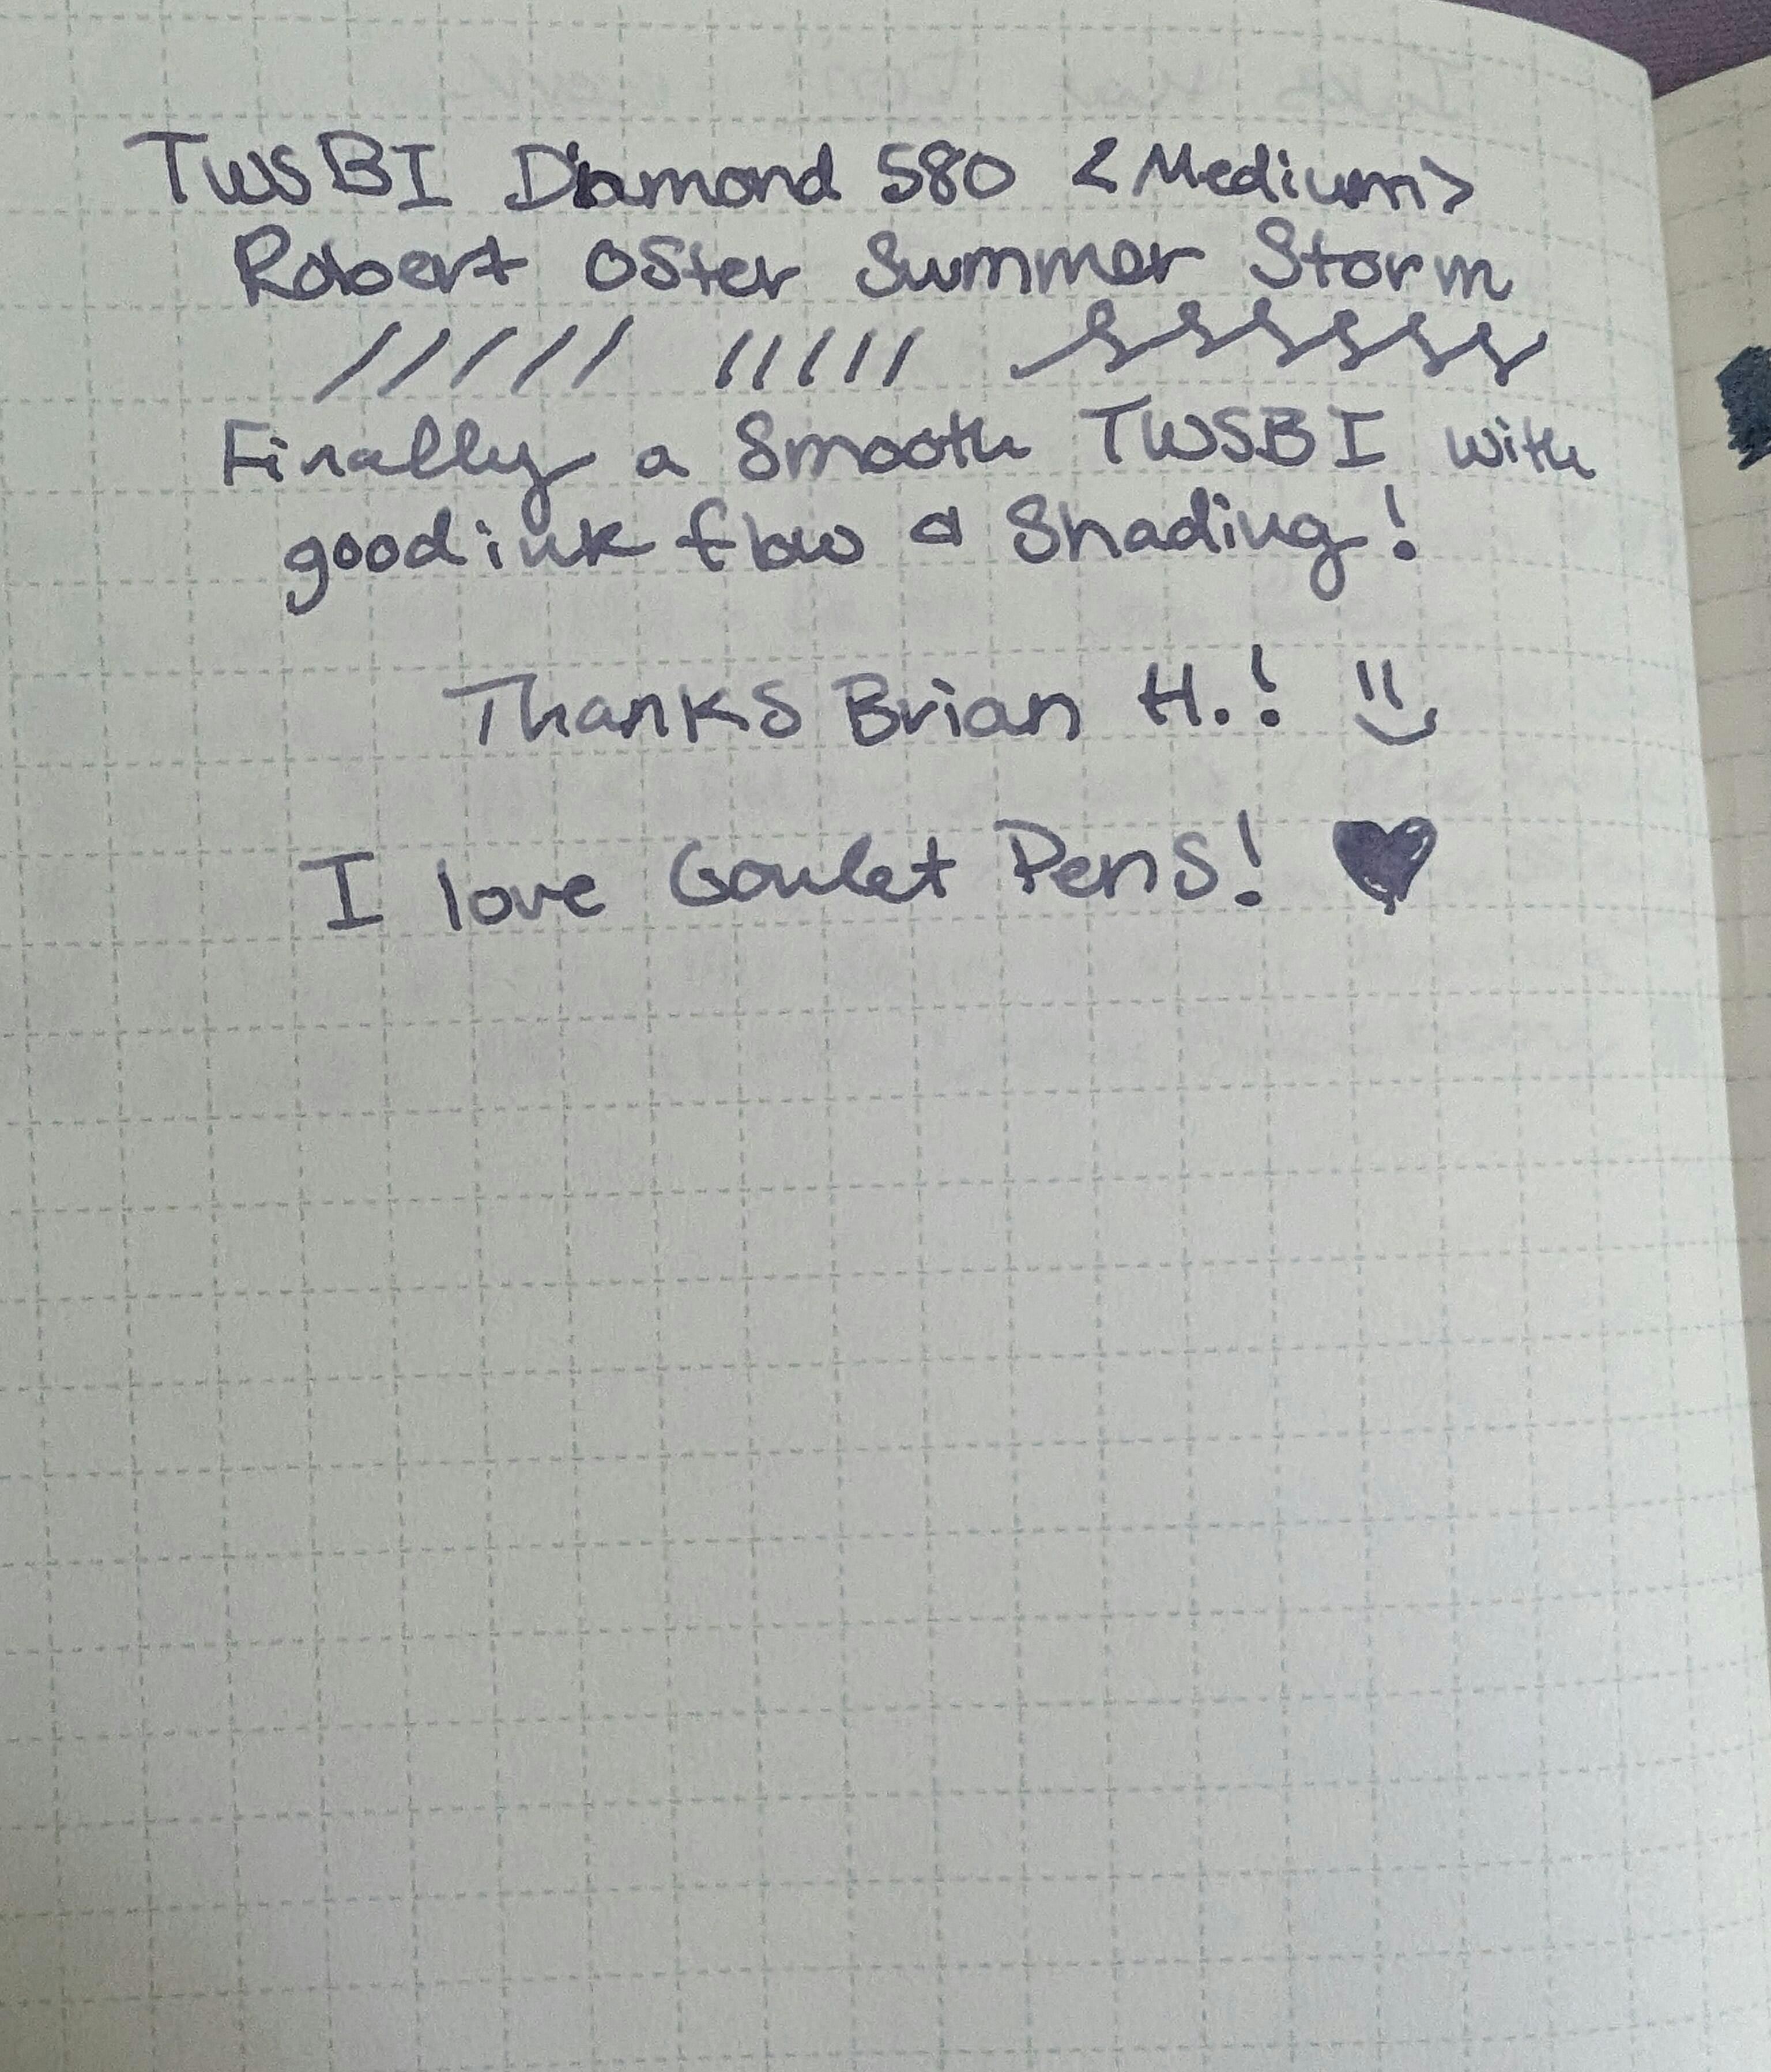 TWSBI Diamond 580 <Medium>
Robert Oster Summer Storm
Finally a Smooth TWSBI with
good ink flow & Shading!
Thanks Brian H.!
I love Goulet Pens! ♥